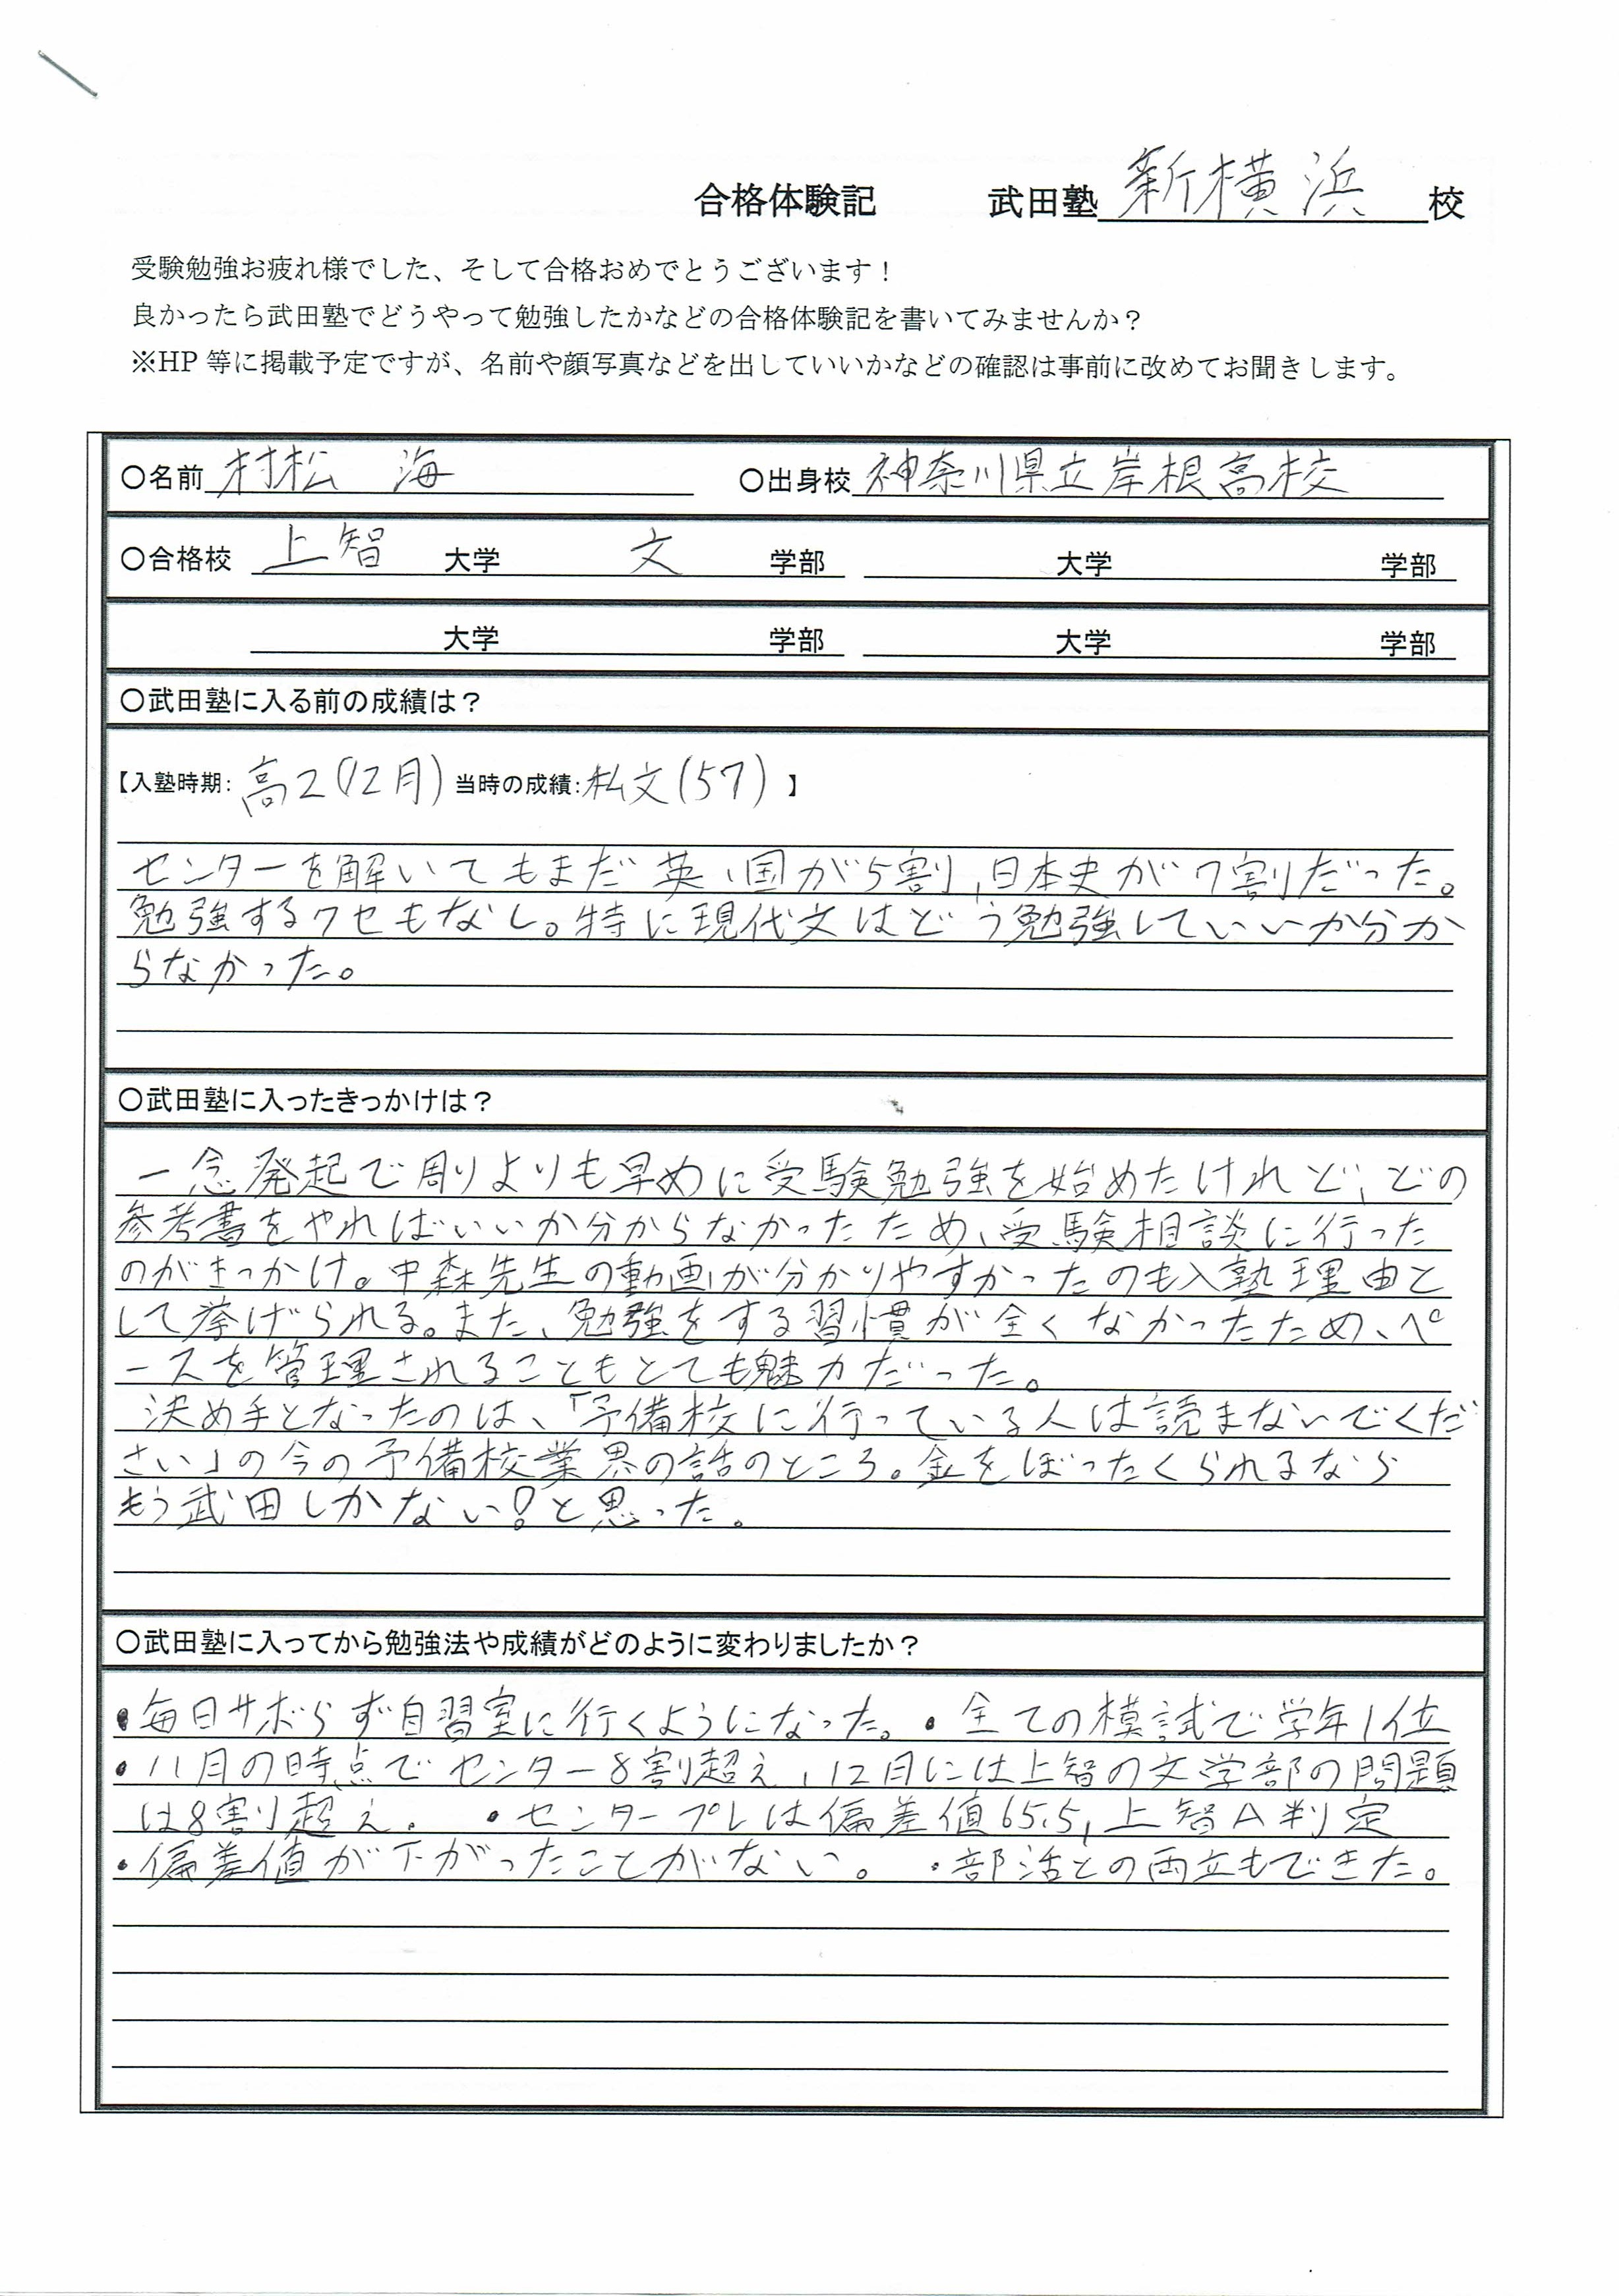 合格体験記 武田塾新横浜校
受験勉強お疲れ様でした、そして合格おめでとうございます！
良かったら武田塾でどうやって勉強したかなどの合格体験記を書いてみませんか？
※HP 等に掲載予定ですが、名前や顔写真などを出していいかなどの確認は事前に改めてお聞きします。
○名前 村松 海 ○出身校 神奈川県立岸根高校
○合格校 上智 大学 文 学部 大学 学部
大学 学部 大学 学部
○武田塾に入る前の成績は？
【入塾時期：高2(12月) 当時の成績：私文(57) 】
センターを解いてもまだ英、国が5割、日本史が7割だった。
勉強するクセもなし。特に現代文はどう勉強していいか分か
らなかった。
○武田塾に入ったきっかけは？
一念発起で周りよりも早めに受験勉強を始めたけれど、どの
参考書をやればいいか分からなかったため、受験相談に行った
のがきっかけ。中森先生の動画が分かりやすかったのも入塾理由と
して挙げられる。また、勉強をする習慣が全くなかったため、ペ
ースを管理されることもとても魅力だった。
決め手となったのは、「予備校に行っている人は読まないでくだ
さい」の今の予備校業界の話のところ。金をぼったくられるなら
もう武田しかない！と思った。
○武田塾に入ってから勉強法や成績がどのように変わりましたか？
・毎日サボらず自習室に行くようになった。・全ての模試で学年1位
・11月の時点でセンター8割超え、12月には上智の文学部の問題
は8割り超え。 ・センタープレは偏差値65.5、上智A判定
・偏差値が下がったことがない。 ・部活との両立もできた。